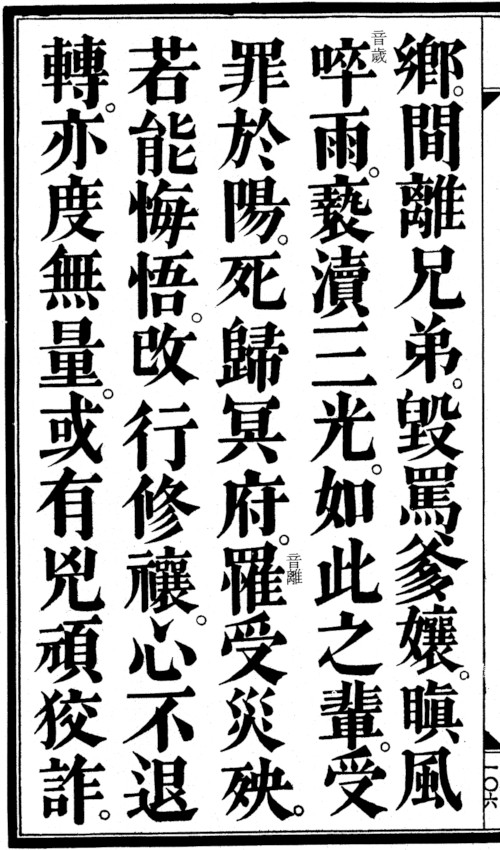 鄉。間離兄弟。毀罵爹孃。瞋風
啐音歲雨。褻瀆三光。如此之輩。受
罪於陽。死歸冥府。罹音離受災殃。
若能悔悟。改行修禳。心不退
轉。亦度無量。或有兇頑狡詐。
一〇六